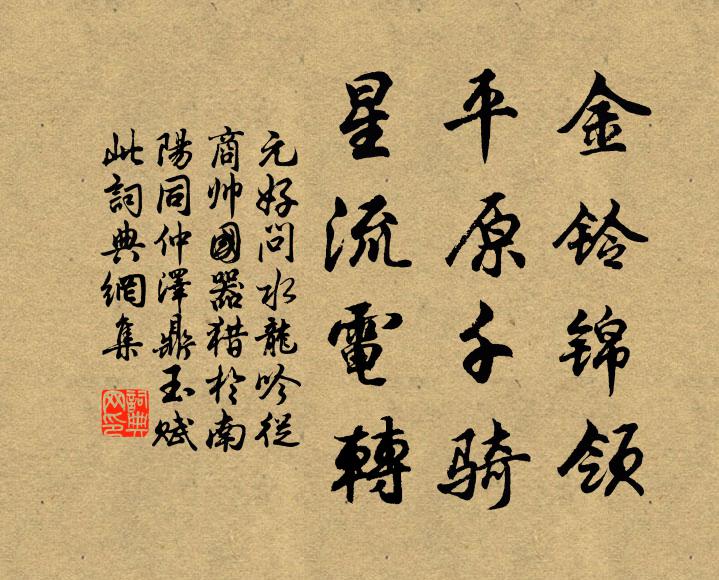 金铃锦领
平原千骑
星流電轉
元好问水龍吟從
商帅國器猎於南
陽同仲澤鼎玉赋
此詞典網集
詞典
网印